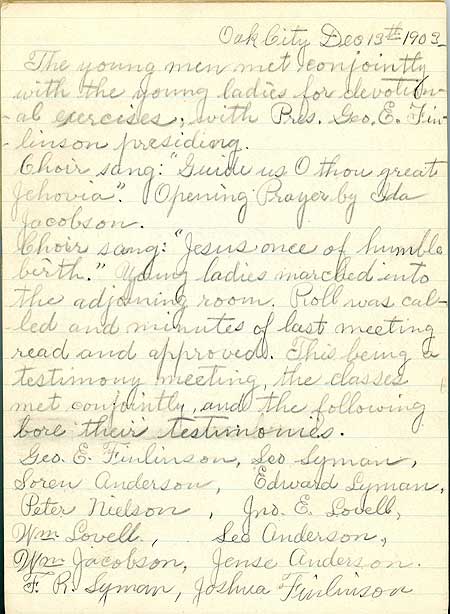 Oak City Dec 13th 1903
The young men met conjointly
with the young ladies for devotion-
-al exercises, with Pres. Geo. E. Fin-
linson presiding.
Choir sang: "Guide us O thou great
Jehovia". Opening Prayer by Ida
Jacobson.
Choir sang: "Jesus once of humble
birth." Young ladies marched into
the adjoining room. Roll was cal-
led and minutes of last meeting
read and approved. This being a
testimony meeting, the classes
met conjointly, and the following
bore their testimonies.
Geo. E. Finlinson, Leo Lyman,
Soren Anderson, Edward Lyman,
Peter Nielson, Jno. E. Lovell,
Wm. Lovell, Leo Anderson,
Wm Jacobson, Jense Anderson.
F. R. Lyman, Joshua Finlinson